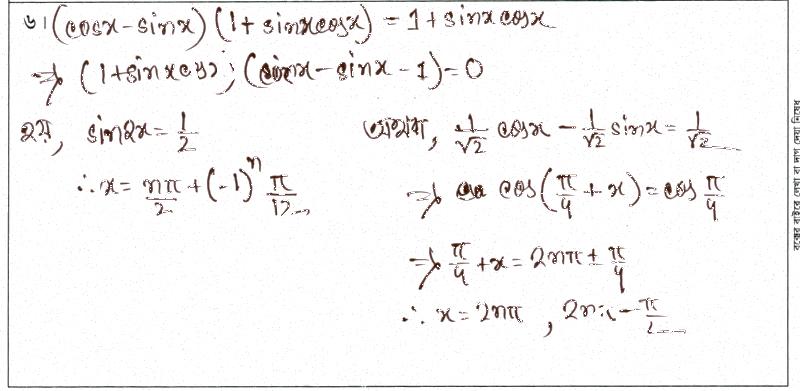 ৬। (cosx - sinx) (1 + sinxcosx) = 1 + sinxcosx
⇒ (1+sinxcosx) (cosx - sinx - 1) = 0
হয়, sin2x = 1/2
∴ x = nπ/2 + (-1)^n π/12
অথবা, 1/√2 cosx - 1/√2 sinx = 1/√2
⇒ cos(π/4 + x) = cos π/4
⇒ π/4 + x = 2nπ ± π/4
∴ x = 2nπ, 2nπ - π/2